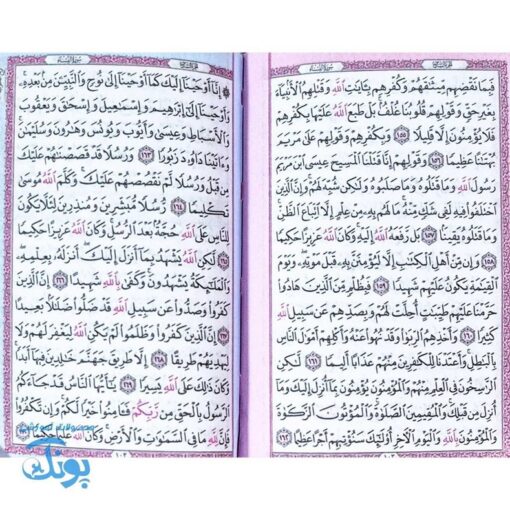 الجزء السادس
سورة النساء
فَبِمَا نَقْضِهِم مِّيثَٰقَهُمْ وَكُفْرِهِم بِـَٔايَٰتِ ٱللَّهِ وَقَتْلِهِمُ ٱلْأَنۢبِيَآءَ
بِغَيْرِ حَقٍّ وَقَوْلِهِمْ قُلُوبُنَا غُلْفٌۢ بَلْ طَبَعَ ٱللَّهُ عَلَيْهَا بِكُفْرِهِمْ
فَلَا يُؤْمِنُونَ إِلَّا قَلِيلًا ١٥٥ وَبِكُفْرِهِمْ وَقَوْلِهِمْ عَلَىٰ مَرْيَمَ
بُهْتَٰنًا عَظِيمًا ١٥٦ وَقَوْلِهِمْ إِنَّا قَتَلْنَا ٱلْمَسِيحَ عِيسَى ٱبْنَ مَرْيَمَ
رَسُولَ ٱللَّهِ وَمَا قَتَلُوهُ وَمَا صَلَبُوهُ وَلَٰكِن شُبِّهَ لَهُمْ وَإِنَّ ٱلَّذِينَ
ٱخْتَلَفُوا۟ فِيهِ لَفِى شَكٍّ مِّنْهُ مَا لَهُم بِهِۦ مِنْ عِلْمٍ إِلَّا ٱتِّبَاعَ ٱلظَّنِّ
وَمَا قَتَلُوهُ يَقِينًۢا ١٥٧ بَل رَّفَعَهُ ٱللَّهُ إِلَيْهِ وَكَانَ ٱللَّهُ عَزِيزًا حَكِيمًا
١٥٨ وَإِن مِّنْ أَهْلِ ٱلْكِتَٰبِ إِلَّا لَيُؤْمِنَنَّ بِهِۦ قَبْلَ مَوْتِهِۦ وَيَوْمَ
ٱلْقِيَٰمَةِ يَكُونُ عَلَيْهِمْ شَهِيدًا ١٥٩ فَبِظُلْمٍ مِّنَ ٱلَّذِينَ هَادُوا۟
حَرَّمْنَا عَلَيْهِمْ طَيِّبَٰتٍ أُحِلَّتْ لَهُمْ وَبِصَدِّهِمْ عَن سَبِيلِ ٱللَّهِ
كَثِيرًا ١٦٠ وَأَخْذِهِمُ ٱلرِّبَوٰا۟ وَقَدْ نُهُوا۟ عَنْهُ وَأَكْلِهِمْ أَمْوَٰلَ ٱلنَّاسِ
بِٱلْبَٰطِلِ وَأَعْتَدْنَا لِلْكَٰفِرِينَ مِنْهُمْ عَذَابًا أَلِيمًا ١٦١ لَّٰكِنِ
ٱلرَّٰسِخُونَ فِى ٱلْعِلْمِ مِنْهُمْ وَٱلْمُؤْمِنُونَ يُؤْمِنُونَ بِمَآ أُنزِلَ إِلَيْكَ وَمَآ
أُنزِلَ مِن قَبْلِكَ وَٱلْمُقِيمِينَ ٱلصَّلَوٰةَ وَٱلْمُؤْتُونَ ٱلزَّكَوٰةَ
وَٱلْمُؤْمِنُونَ بِٱللَّهِ وَٱلْيَوْمِ ٱلْءَاخِرِ أُو۟لَٰٓئِكَ سَنُؤْتِيهِمْ أَجْرًا عَظِيمًا ١٦٢
١٠٣
الجزء السادس
سورة النساء
إِنَّآ أَوْحَيْنَآ إِلَيْكَ كَمَآ أَوْحَيْنَآ إِلَىٰ نُوحٍ وَٱلنَّبِيِّـۧنَ مِنۢ بَعْدِهِۦ
وَأَوْحَيْنَآ إِلَىٰٓ إِبْرَٰهِيمَ وَإِسْمَٰعِيلَ وَإِسْحَٰقَ وَيَعْقُوبَ
وَٱلْأَسْبَاطِ وَعِيسَىٰ وَأَيُّوبَ وَيُونُسَ وَهَٰرُونَ وَسُلَيْمَٰنَ
وَءَاتَيْنَا دَاوُۥدَ زَبُورًا ١٦٣ وَرُسُلًا قَدْ قَصَصْنَٰهُمْ عَلَيْكَ
مِن قَبْلُ وَرُسُلًا لَّمْ نَقْصُصْهُمْ عَلَيْكَ وَكَلَّمَ ٱللَّهُ مُوسَىٰ
تَكْلِيمًا ١٦٤ رُّسُلًا مُّبَشِّرِينَ وَمُنذِرِينَ لِئَلَّا يَكُونَ
لِلنَّاسِ عَلَى ٱللَّهِ حُجَّةٌۢ بَعْدَ ٱلرُّسُلِ وَكَانَ ٱللَّهُ عَزِيزًا حَكِيمًا
١٦٥ لَّٰكِنِ ٱللَّهُ يَشْهَدُ بِمَآ أَنزَلَ إِلَيْكَ أَنزَلَهُۥ بِعِلْمِهِۦ
وَٱلْمَلَٰٓئِكَةُ يَشْهَدُونَ وَكَفَىٰ بِٱللَّهِ شَهِيدًا ١٦٦ إِنَّ ٱلَّذِينَ
كَفَرُوا۟ وَصَدُّوا۟ عَن سَبِيلِ ٱللَّهِ قَدْ ضَلُّوا۟ ضَلَٰلًۢا بَعِيدًا
١٦٧ إِنَّ ٱلَّذِينَ كَفَرُوا۟ وَظَلَمُوا۟ لَمْ يَكُنِ ٱللَّهُ لِيَغْفِرَ لَهُمْ وَلَا
لِيَهْدِيَهُمْ طَرِيقًا ١٦٨ إِلَّا طَرِيقَ جَهَنَّمَ خَٰلِدِينَ فِيهَآ أَبَدًا
وَكَانَ ذَٰلِكَ عَلَى ٱللَّهِ يَسِيرًا ١٦٩ يَٰٓأَيُّهَا ٱلنَّاسُ قَدْ جَآءَكُمُ
ٱلرَّسُولُ بِٱلْحَقِّ مِن رَّبِّكُمْ فَـَٔامِنُوا۟ خَيْرًا لَّكُمْ وَإِن تَكْفُرُوا۟
فَإِنَّ لِلَّهِ مَا فِى ٱلسَّمَٰوَٰتِ وَٱلْأَرْضِ وَكَانَ ٱللَّهُ عَلِيمًا حَكِيمًا
پونک